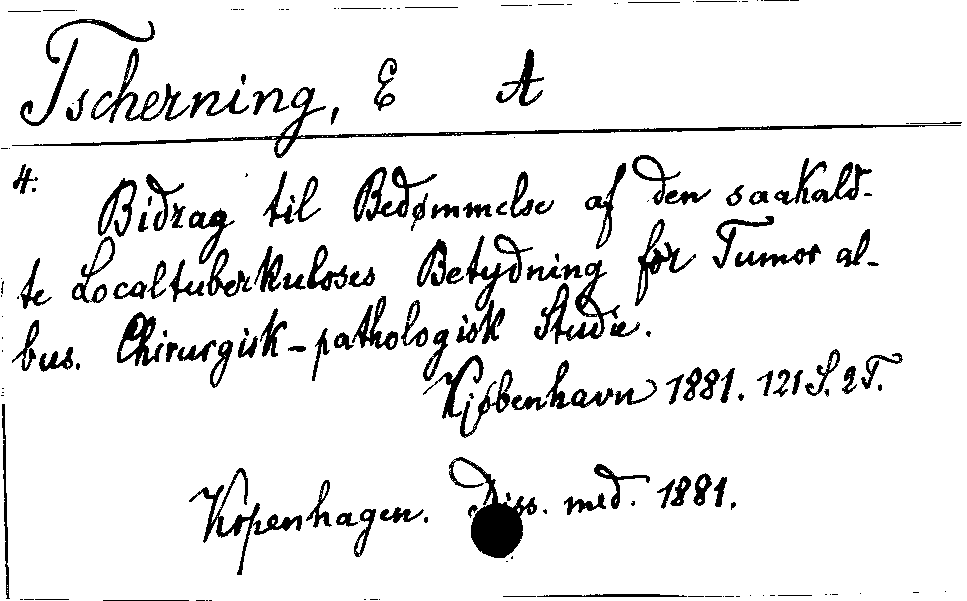 Tscherning, E A
4.
Bidrag til Bedømmelse af den saakald-
te Localtuberkuloses Betydning for Tumor al-
bus. Chirurgisk-pathologisk Studie.
Kjøbenhavn 1881. 121 S. 2 T.
Kopenhagen. Diss. med. 1881.